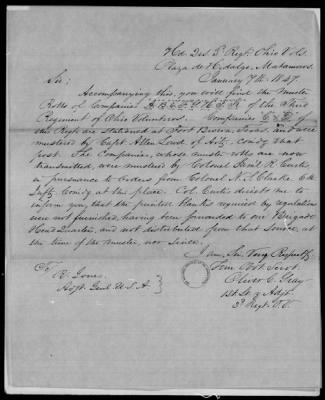 Hd. Qrs. 3d Regt. Ohio Vols.
Plaza de Hidalgo, Matamoros
January 7th 1847.
Sir:
Accompanying this, you will find the Muster
Rolls of Companies of the Third
Regiment of Ohio Volunteers. Companies
of this Regt. are stationed at Fort Brown, Texas, and were
mustered by Capt. Allen Lowd of Arty. Comdg that
post. The Companies, whose muster rolls are now
transmitted, were mustered by Colonel Saml. R. Curtis,
in pursuance to orders from Colonel N. S. Clarke 6th
Infty Comdg at this place. Col. Curtis directs me to
inform you that the printed blanks required by regulation
were not furnished, having been forwarded to our Brigade
Head Quarters, and not distributed from that source, at
the time of the muster, nor since.
I am, Sir Very Respectfy
Your Obt. Servt.
Oliver C. Gray
1st Lt. & Adjt.
3d Regt. O.V.
To
R. Jones
Adjt. Genl. U.S.A.